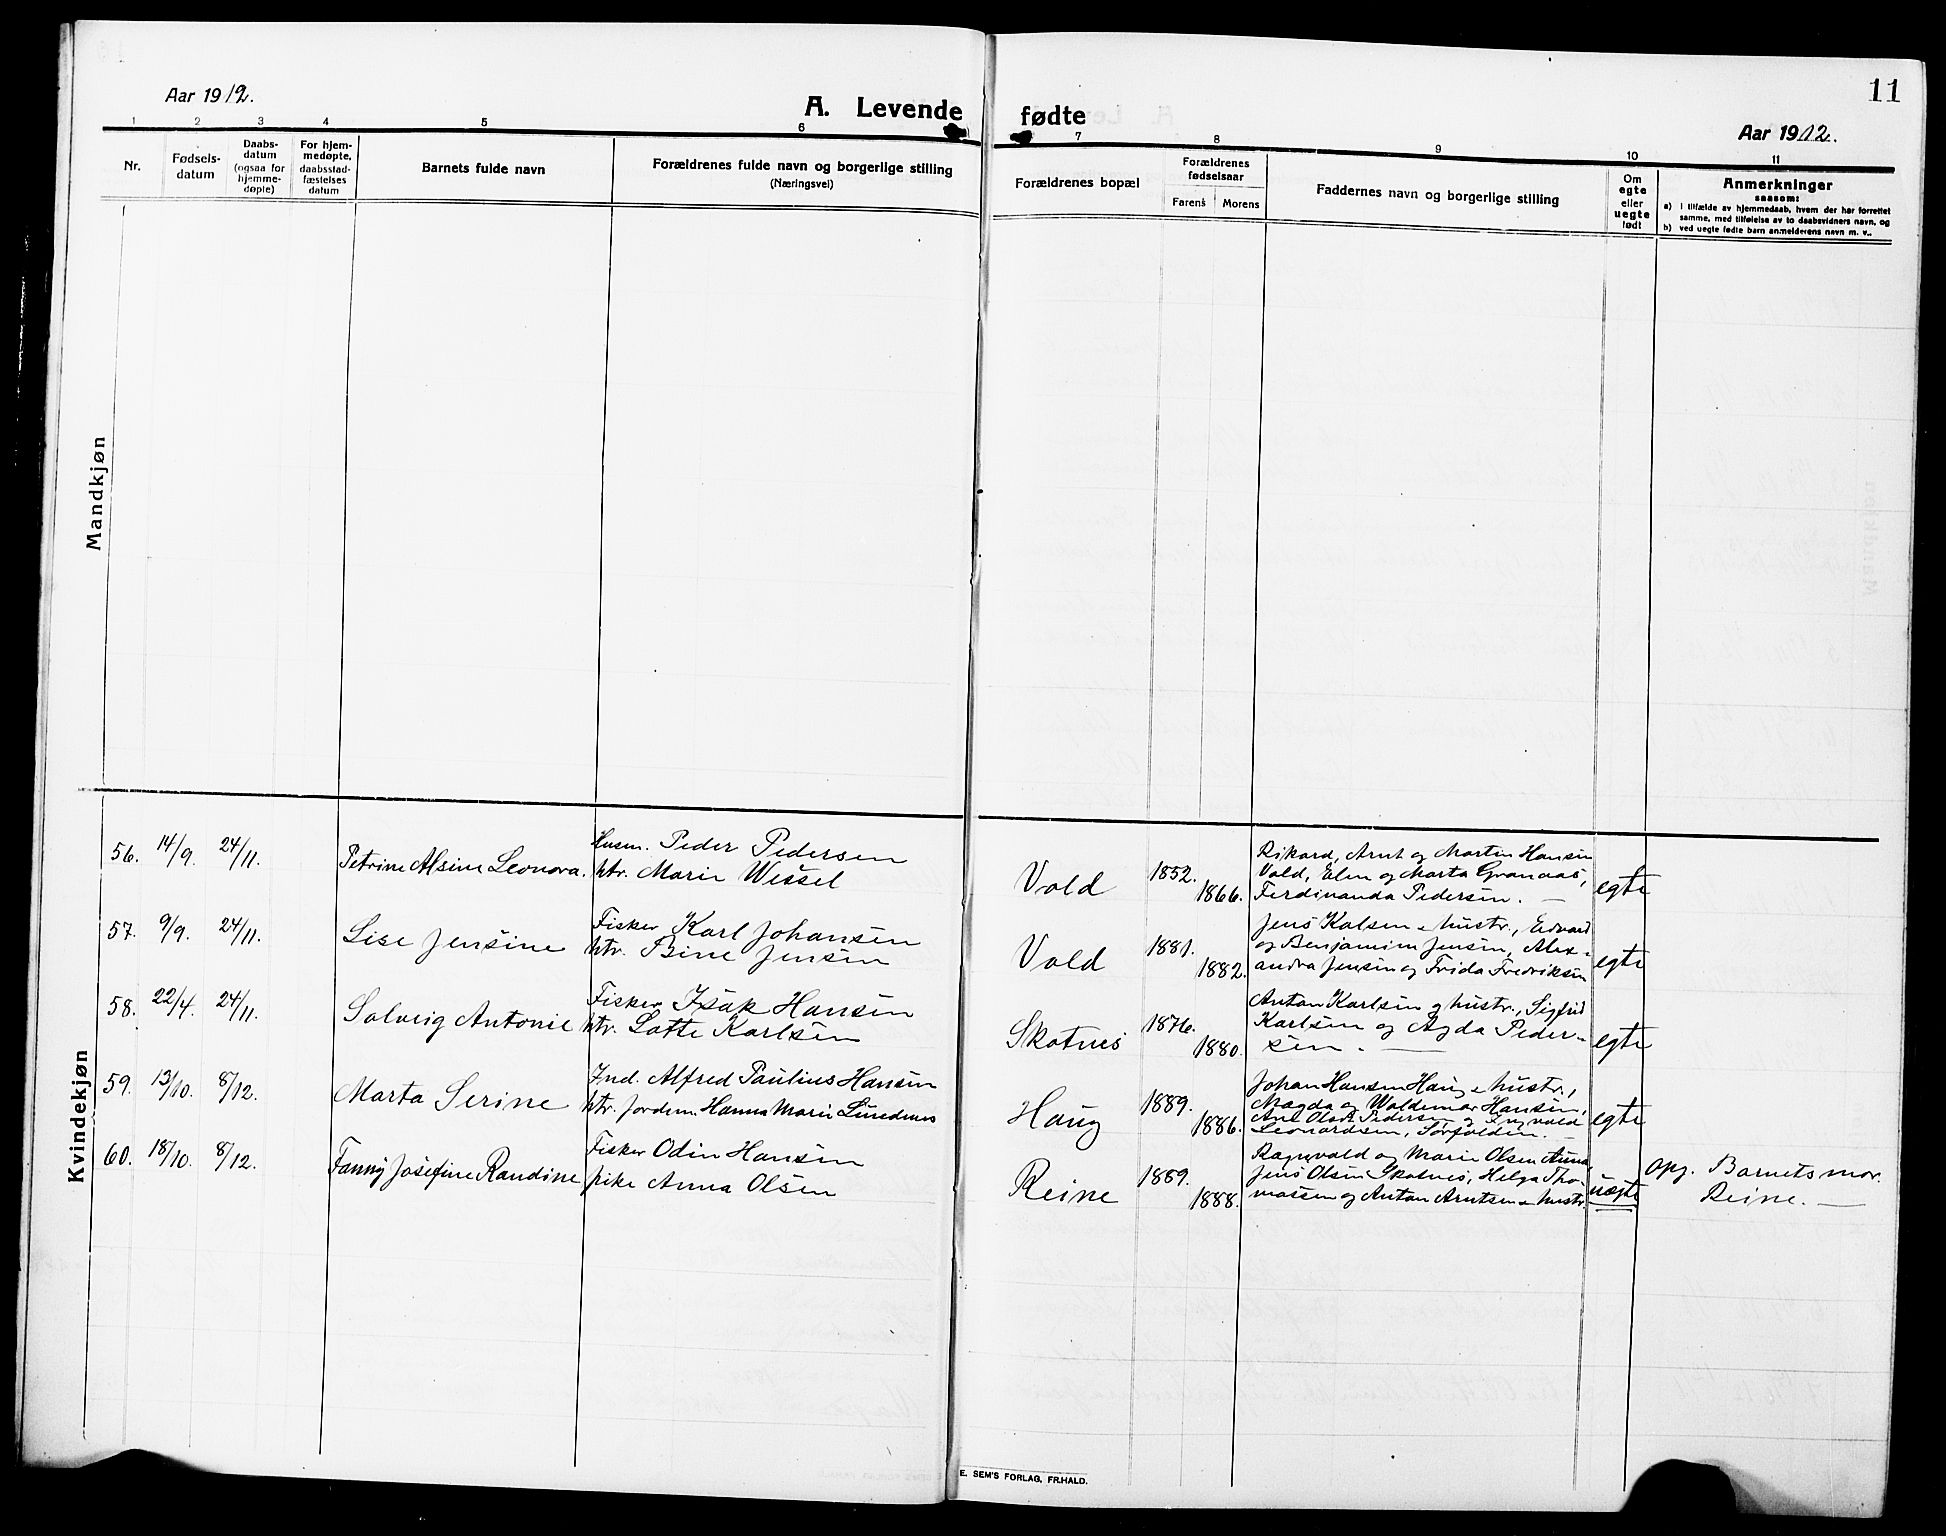 Aar 1912.
A. Levende fødte
11
Aar 1912.
1 2 3 4 5 6 7 8 9 10 11
Nr.
Fødsels-
datum
Daabs-
datum
(ogsaa for
hjemme-
døpte)
For hjem-
medøpte,
daabsstad-
fæstelses
datum
Barnets fulde navn
Forældrenes fulde navn og borgerlige stilling
(Næringsvei)
Forældrenes bopæl
Forældrenes
fødselsaar
Farens Morens
Faddernes navn og borgerlige stilling
Om
egte
eller
uegte
født
Anmerkninger
saasom:
a) I tilfælde av hjemmedaab, hvem der har forrettet
samme, med tilføielse av to daabsvidners navn, og
b) ved uegte fødte barn anmelderens navn m. v..
Mandkjøn
Kvindekjøn
56. 14/9. 24/11. Petrine Alsine Leonora.
Husm. Peder Pedersen
htr. Marie Wessel
Vold 1852. 1866.
Rikard, Arnt og Martin Hansen
Vold, Elen og Marta Granaas,
Ferdinanda Pedersen. —
egte
57. 9/9. 24/11. Lise Jensine
Fisker Karl Johansen
htr. Bine Jensen
Vold 1881. 1882.
Jens Kalsen & hustr., Edvard
og Benjamin Jensen, Alex-
andra Jensen og Frida Fredriksen
egte
58. 22/4. 24/11. Solveig Antonie
Fisker Isak Hansen
htr. Lotte Karlsen
Skotnes 1876. 1880.
Anton Karlsen og hustr., Sigfrid
Karlsen og Agda Peder-
sen. —
egte
59. 13/10. 8/12. Marta Serine
Ind. Alfred Paulius Hansen
htr. Jordem. Hanna Marie Lundenes
Haug 1889. 1886.
Johan Hansen Haug & hustr.,
Magda og Waldemar Hansen,
Pedersen og Ingvald
Leonardsen, Sørfolden. —
egte
60. 18/10. 8/12. Fanny Josefine Randine
Fisker Odin Hansen
pike Anna Olsen
Reine 1889. 1888.
Ragnvald og Marie Olsen
Jens Olsen Skotnes, Helga Tho-
massen og Anton Arntsen & hustr.
uegte
Opg. Barnets mor.
Reine. —
E. SEM'S FORLAG, FR.HALD.